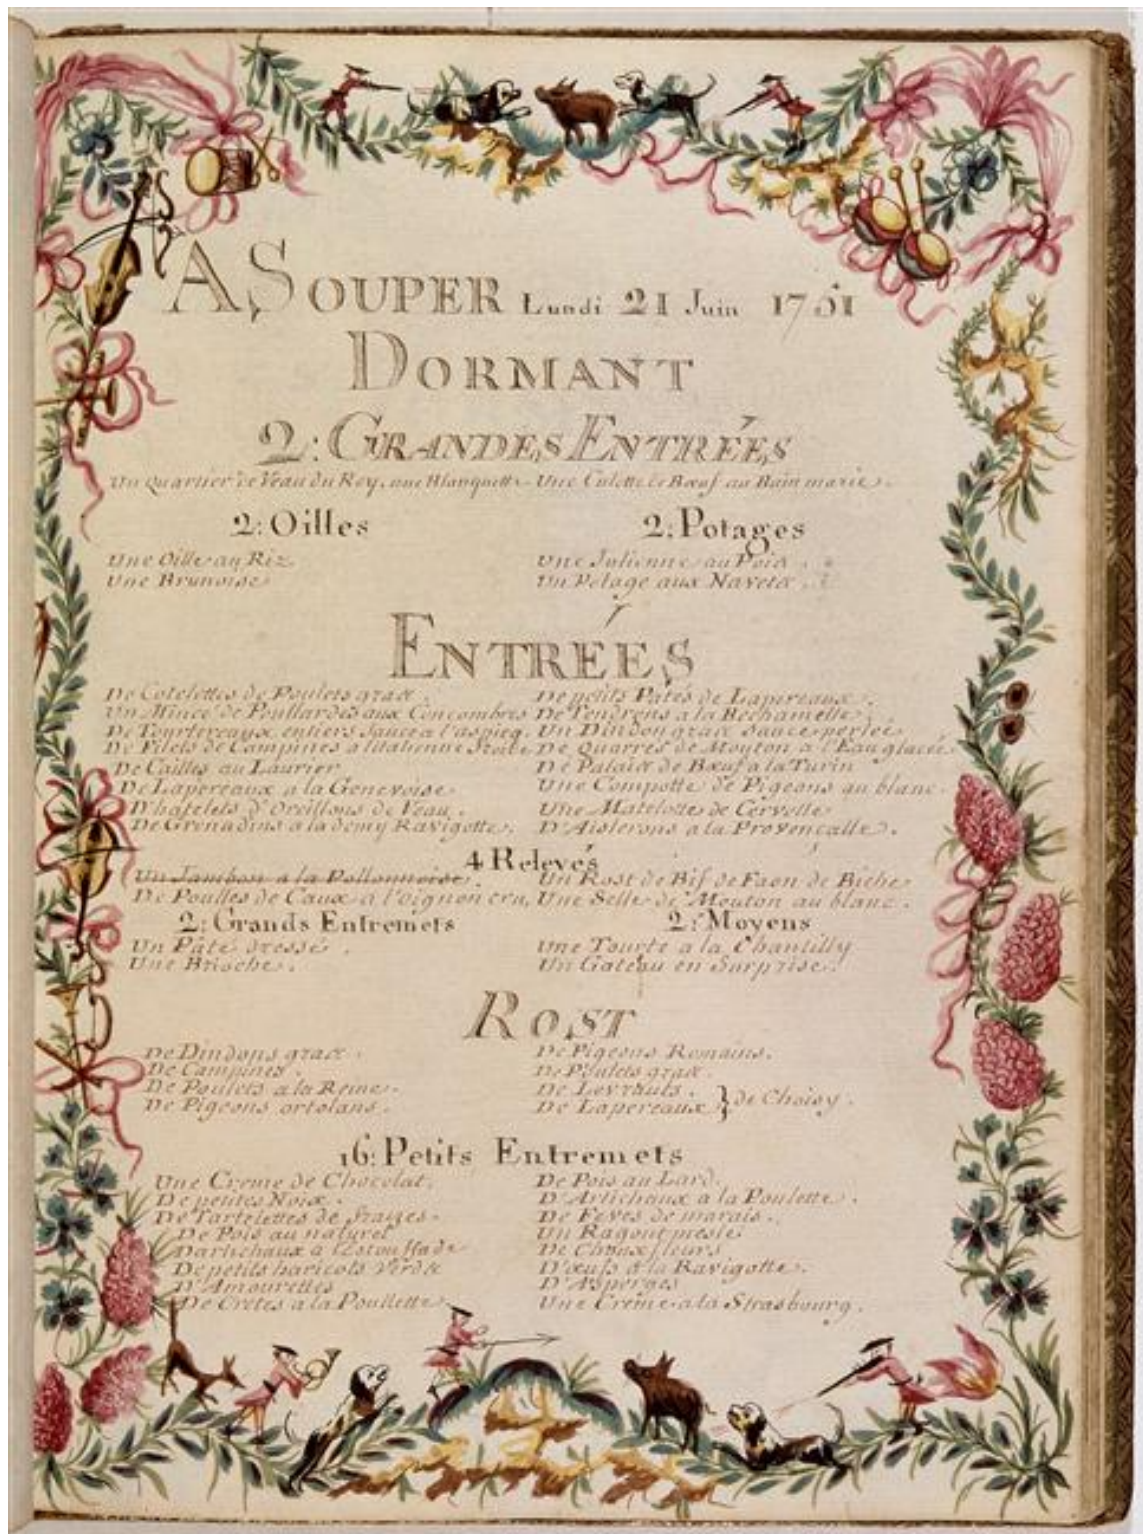 A SOUPER Lundi 21 Juin 1751
DORMANT
2: GRANDES ENTRÉES
Un Quartier de Veau du Roy, une Blanquette Une Culotte de Bœuf au Bain marie.
2: Oilles
Une Oille au Riz
Une Brunoise
2: Potages
Une Julienne au Pois
Un Potage aux Navets
ENTRÉES
De Cotelettes de Poulets gras.
Un Mincé de Poullardes aux Concombres
De Tourtereaux entiers Sauce a l'aspicq.
De Filets de Campines a l'italienne
De Cailles au Laurier
De Lapereaux a la Genevoise
D'hatelets d'Oreillons de Veau.
De Grenadins a la demy Ravigotte.
De petits Patés de Lapereaux.
De Tendrons a la Bechamelle.
Un Dindon gras Sauce perlée
De Quarrés de Mouton a l'Eau glacés
De Palais de Bœuf a la Turin
Une Compotte de Pigeons au blanc.
Une Matelotte de Cervelle
D'Aislerons a la Provençalle.
4 Relevés
Un Jambon a la Pollonnoise.
De Poulles de Caux a l'oignon cru,
Un Rost de Bif de Faon de Biche
Une Selle de Mouton au blanc.
2: Grands Entremets
Un Pâté dressé.
Une Brioche.
2: Moyens
Une Tourte a la Chantilly
Un Gateau en Surprise.
ROST
De Dindons gras.
De Campines.
De Poulets a la Reine.
De Pigeons ortolans.
De Pigeons Romains.
De Poulets gras.
De Levrauts.
De Lapereaux } de Choisy.
16: Petits Entremets
Une Creme de Chocolat.
De petites Noix.
De Tartelettes de fraizes.
De Pois au naturel
Dartichaux a l'Estouffade
De petits haricots Verds
D'Amourettes
De Cretes a la Poullette.
De Pois au Lard.
D'Artichaux a la Poulette.
De Feves de marais.
Un Ragout meslé
De Choux fleurs
D'œufs a la Ravigotte.
D'Asperges
Une Crême a la Strasbourg.